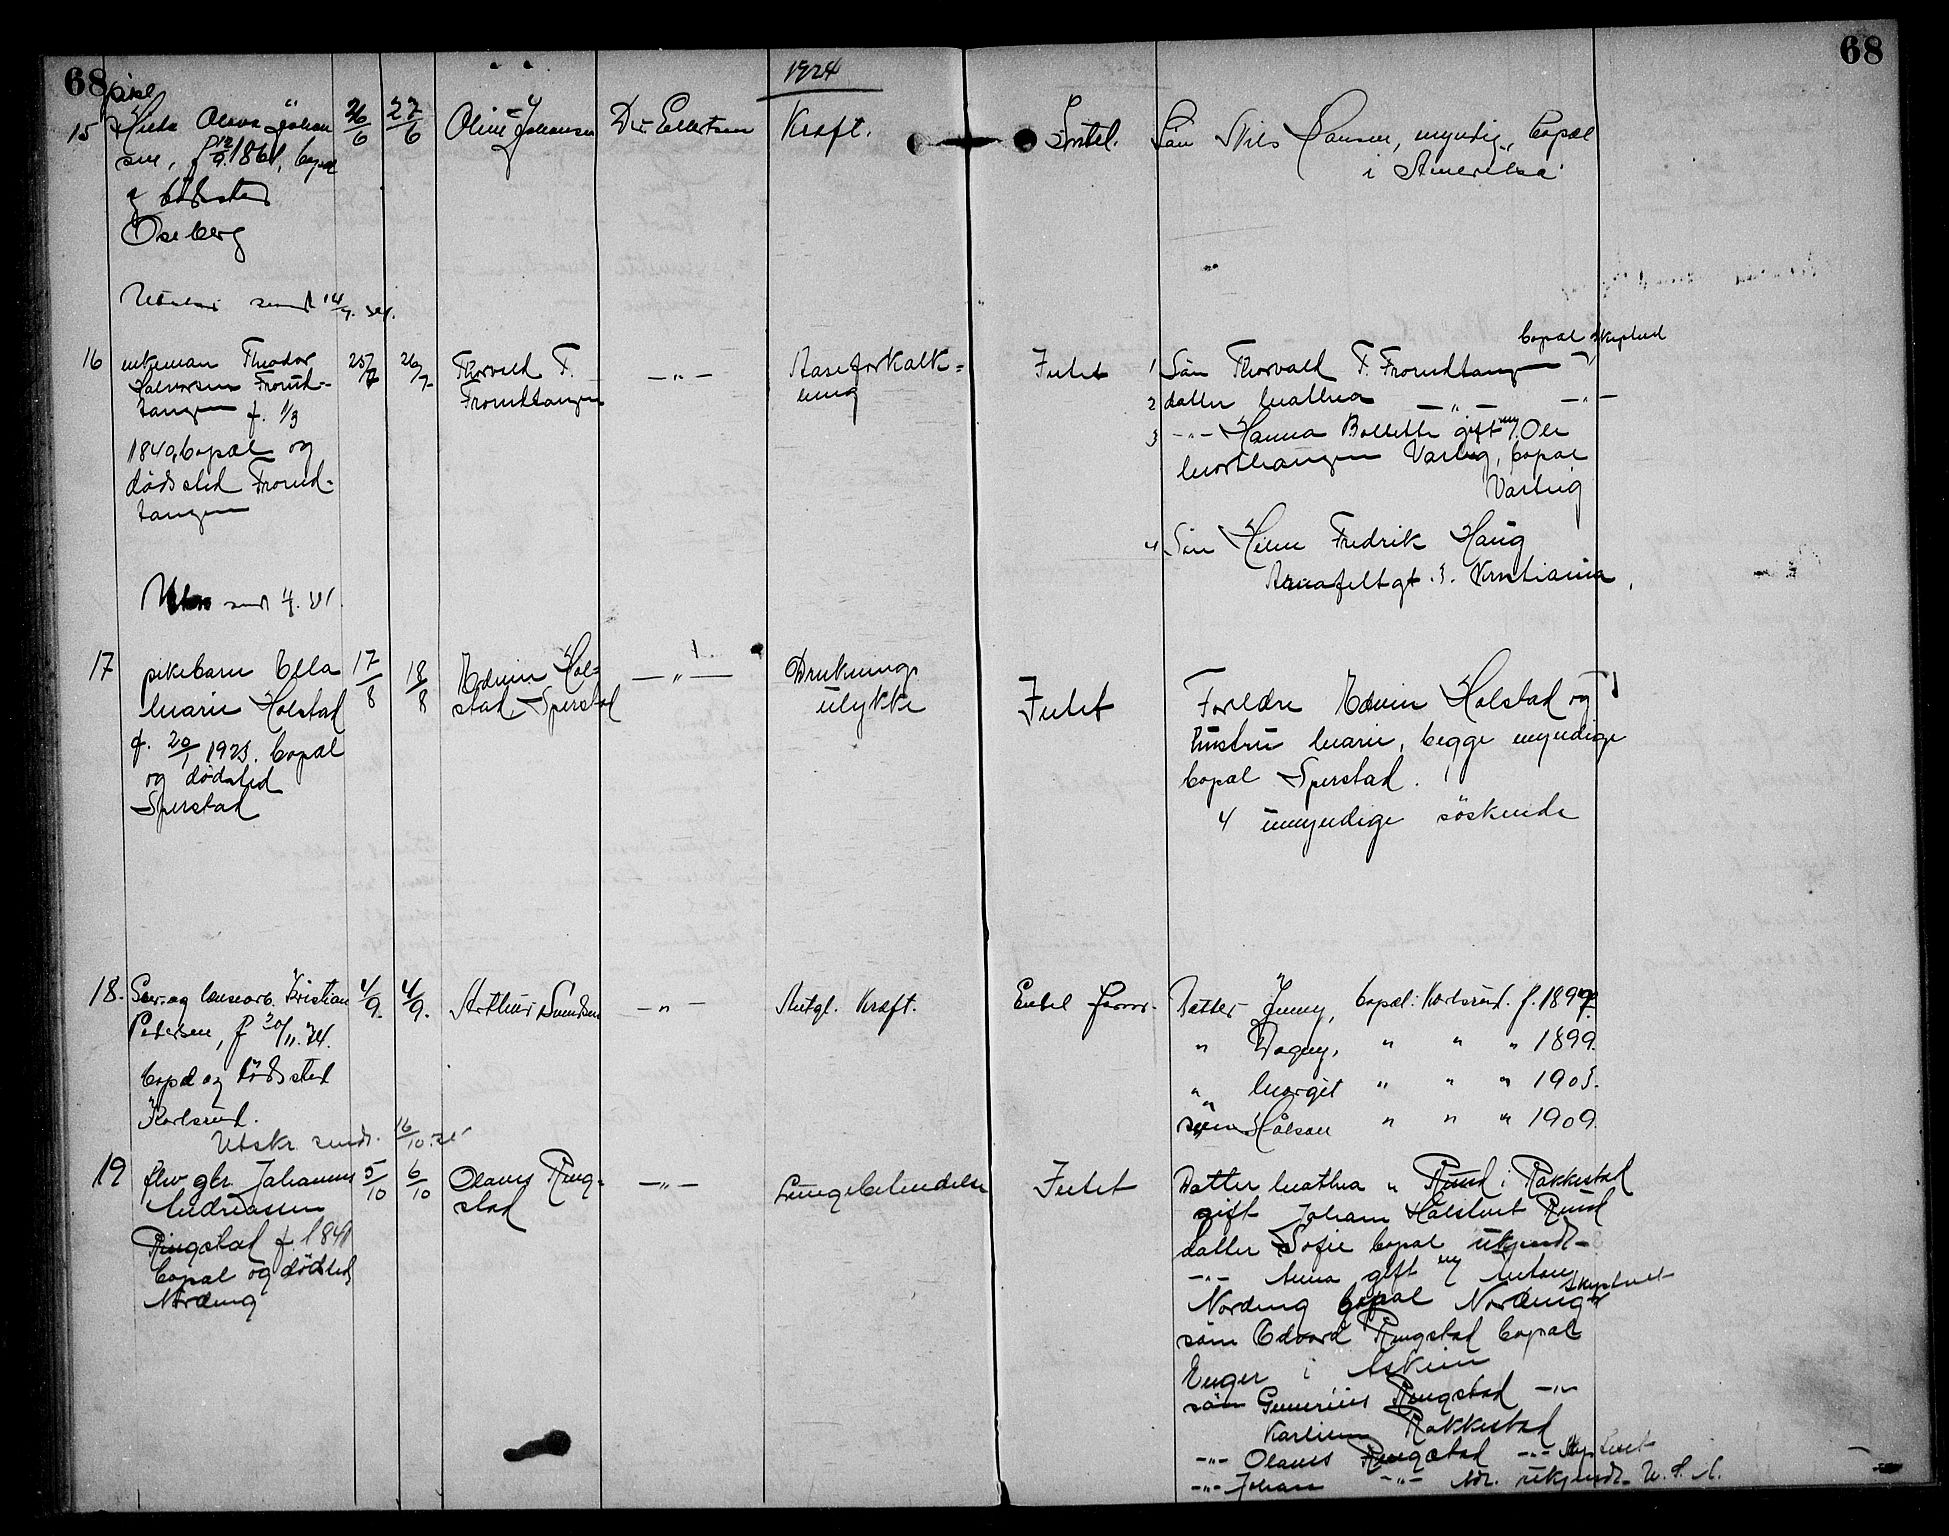 68
1924
68
15
pike
Hilda Olava Johan
sen, f 12/9. 1861, bopæl
og dødssted
Oseberg
26/6
27/6
Oline Johansen
Dr Ellertsen
Kraft.
Intet.
Søn Nils Hansen, myndig, bopæl
i Amerika
sendt 14/7.
16
enkeman Theodor
Halvorsen Fromd-
tangen f. 1/3
1849, bopæl og
dødssted Fromd-
tangen
25/7
26/7
Thorvald T.
Fromdtangen
—„—
Aareforkalk-
ning
Intet
bopæl Skiptvet
1 Søn Thorvald T. Fromdtangen
2 datter Mathea —„— —„—
3 -„- Hanna Bollette gift m/ Ole
Vartug, bopæl
Vartug
4 Søn Fredrik Haug
3. Kristiania
sendt
17
pikebarn Ella
Marie Holstad
f. 20/1 1923. bopæl
og dødssted
Sperstad
17/8
18/8
Edvin Hol-
stad Sperstad
—„—
Druknings
ulykke
Intet
Foreldre Edvin Holstad og
hustru Marie, begge myndige
bopæl Sperstad.
4 umyndige søskende
18.
Gaar- og Kristian
Petersen, f 30/11. 74.
bopæl og dødssted
Karlsrud.
4/9.
4/9.
Arthur Svendsen
—„—
Antgl. Kraft.
Enkel formue.
Datter Jenny, bopæl: Karlsrud. f. 1897.
„ Dagny, „ „ „ 1899.
„ Margit „ „ „ 1903.
søn Håkon „ „ „ 1909.
Utskr. sendt. 16/10.
19
fhv gbr. Johannes
Andreassen
Ringstad f. 1841
bopæl og dødssted
Nordeng
5/10
6/10
Olaves Ring-
stad
—„—
Lungebetendelse
Intet
Datter Mathea „ Ruud i Rakkestad
gift Johan Ruud
datter Sofie bopæl ukjendt
-„- Anna gift m/ Anton
Nordeng bopæl Nordeng Skiptvet
søn Edvard Ringstad bopæl
Enger i Askim
søn Ringstad -„-
Rakkestad
-„- Olaves Ringstad -„- Skiptvet
-„- Johan -„- Adr. ukjendt U. S. A.